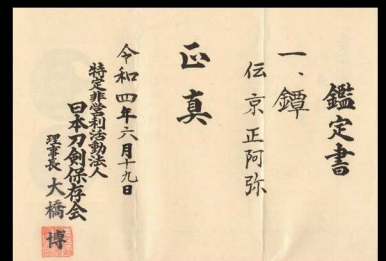 鑑定書
一、鐔
伝京正阿弥
正真
令和四年六月十九日
特定非営利活動法人
日本刀剣保存会
理事長 大橋
博